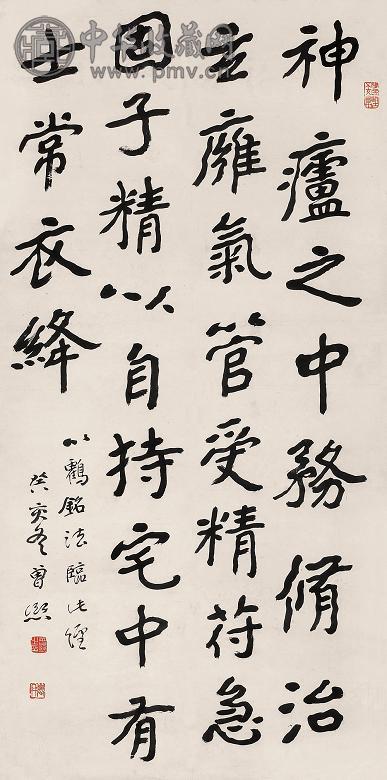 中华收藏网
www.pmv.cn
神廬之中務脩治
玄廱氣管受精苻急
固子精以自持宅中有
士常衣絳
以鶴銘法臨此經
癸亥冬曾熙